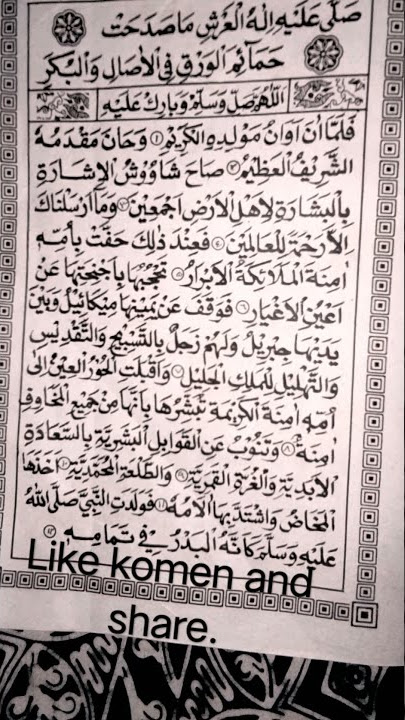 صَلَّى عَلَيْهِ إِلٰهُ الْعَرْشِ مَاصَدَحَتْ
حَمَائِمُ الْوَرْقِ فِي الْاٰصَالِ وَالْبُكَرِ
اَللّٰهُمَّ صَلِّ وَسَلِّمْ وَبَارِكْ عَلَيْهِ
فَلَمَّا اٰنَ اَوَانُ مَوْلِدِهِ الْكَرِيْمِ ۝١ وَحَانَ مَقْدَمُهُ
الشَّرِيْفُ الْعَظِيْمُ ۝٢ صَاحَ شَاوُوْشُ الْإِشَارَةِ
بِالْبِشَارَةِ لِاَهْلِ الْاَرْضِ اَجْمَعِيْنَ ۝٣ وَمَا اَرْسَلْنَاكَ
اِلَّا رَحْمَةً لِلْعَالَمِيْنَ ۝٤ فَعِنْدَ ذٰلِكَ حَفَّتْ بِاُمِّهِ
اٰمِنَةَ الْمَلَائِكَةُ الْاَبْرَارُ ۝٥ تَحْجُبُهَا بِاَجْنِحَتِهَا عَنْ
اَعْيُنِ الْاَغْيَارِ ۝٦ فَوَقَفَ عَنْ يَمِيْنِهَا مِيْكَائِيْلُ وَبَيْنَ
يَدَيْهَا جِبْرِيْلُ وَلَهُمْ زَجَلٌ بِالتَّسْبِيْحِ وَالتَّقْدِيْسِ
وَالتَّهْلِيْلِ لِلْمَلِكِ الْجَلِيْلِ ۝٧ وَاَقْبَلَتِ الْحُوْرُ الْعِيْنُ اِلٰى
اُمِّهِ اٰمِنَةَ الْكَرِيْمَةِ تُبَشِّرُهَا بِاَنَّهَا مِنْ جَمِيْعِ الْمَخَاوِفِ
اٰمِنَةٌ ۝٨ وَتَنُوْبُ عَنِ الْقَوَابِلِ الْبَشَرِيَّةِ بِالسَّعَادَةِ
الْاَبَدِيَّةِ وَالْغُرَّةِ الْقَمَرِيَّةِ ۝٩ وَالطَّلْعَةِ الْمُحَمَّدِيَّةِ ۝١٠ اَخَذَهَا
الْمَخَاضُ وَاشْتَدَّ بِهَا الْاَمْرُ ۝١١ فَوَلَدَتِ النَّبِيَّ صَلَّى اللهُ
عَلَيْهِ وَسَلَّمَ كَاَنَّهُ الْبَدْرُ فِيْ تَمَامِهِ ۝١٢
Like komen and
share.